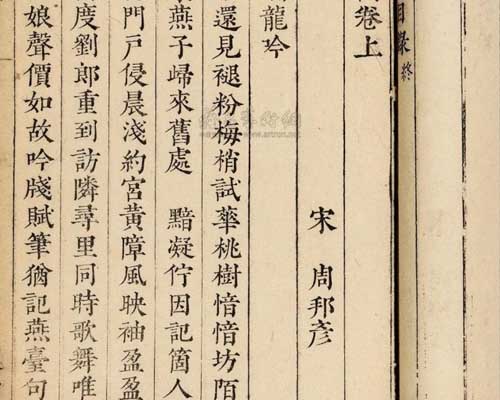 目錄終
卷上
宋 周邦彥
龍吟
還見褪粉梅梢試華桃樹愔愔坊陌
燕子歸來舊處 黯凝佇因記箇人
門戸侵晨淺約宮黃障風映袖盈盈
度劉郎重到訪隣尋里同時歌舞唯
娘聲價如故吟牋賦筆猶記燕臺句